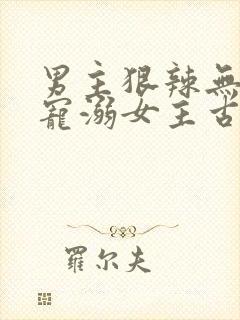 男主狠辣無
寵溺女主古
羅尔夫